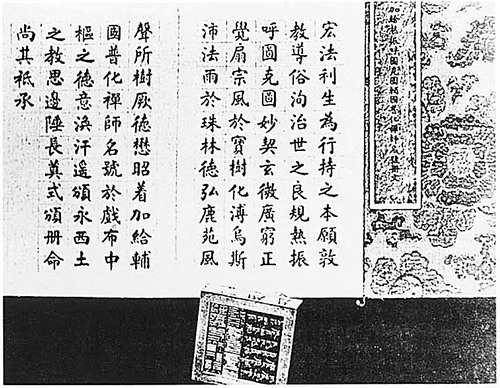 宏法利生為行持之本願敦
教導俗洵治世之良規熱振
呼圖克圖妙契玄微廣窮正
覺扇宗風於寶樹化溥烏斯
沛法雨於珠林德弘鹿苑風
聲所樹厥德懋昭着加給輔
國普化禪師名號於戲布中
樞之德意渙汗遙頒永西土
之教思邊陲長奠式頒册命
尚其祇承